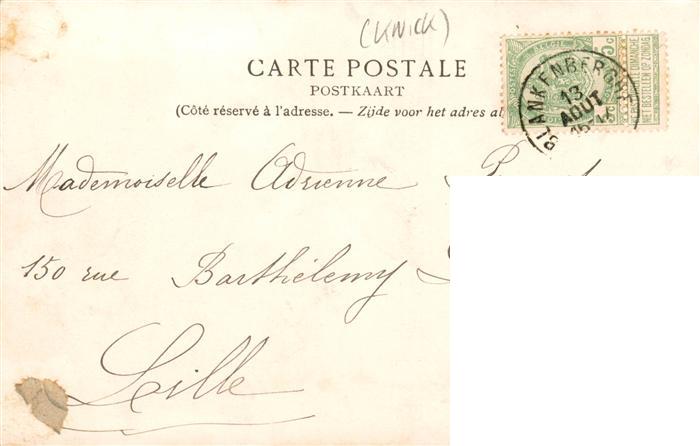 (KNICK)
CARTE POSTALE
POSTKAART
(Côté réservé à l'adresse. — Zijde voor het adres
BLANKENBERGHE
13
AOUT
NE PAS LIVRER LE DIMANCHE
NIET BESTELLEN OP ZONDAG
Mademoiselle Adrienne
150 rue Barthélemy
Lille